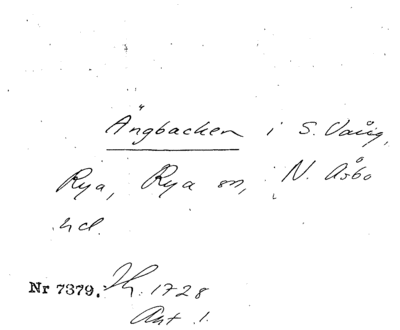 Ängbacken i S. Vång,
Rya, Rya sn, N. Åsbo
hd.
Nr 7379. Jh. 1728
Akt 1.